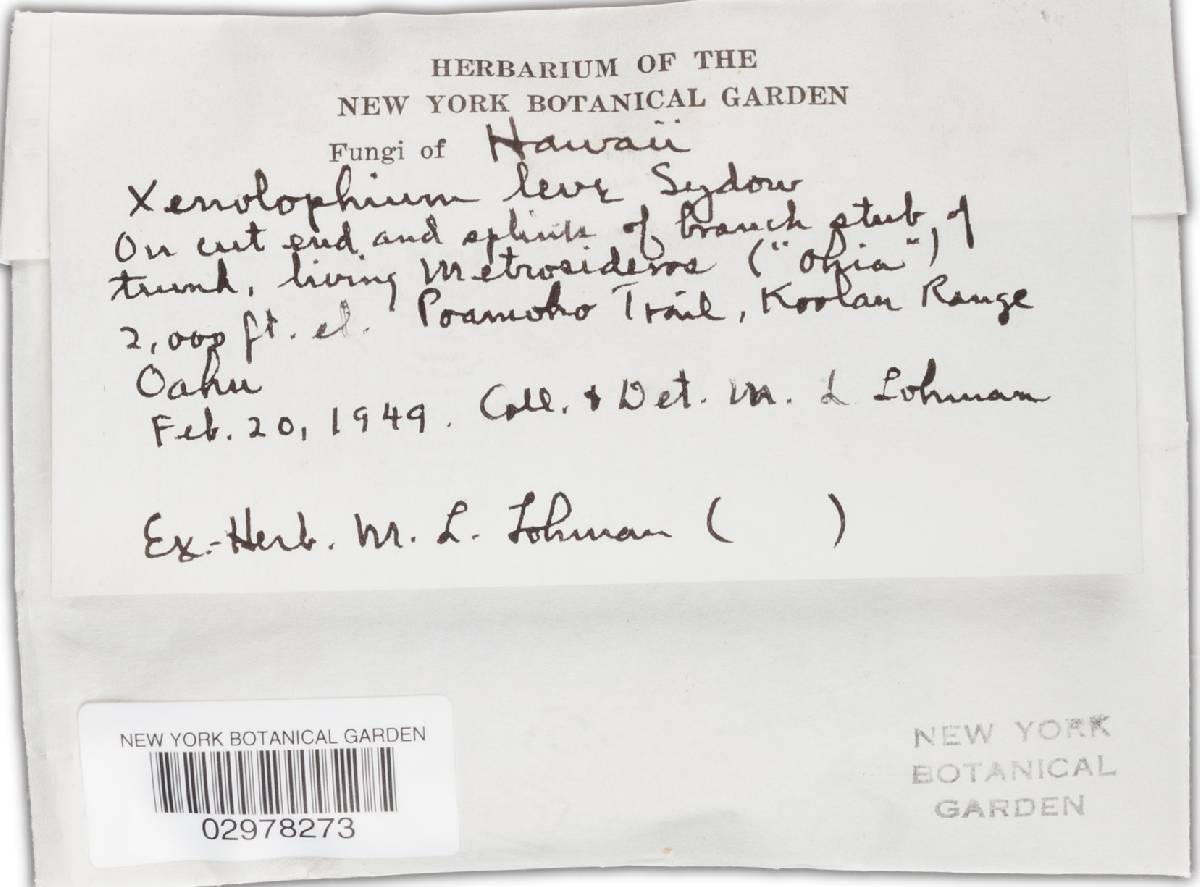 HERBARIUM OF THE
NEW YORK BOTANICAL GARDEN
Fungi of Hawaii
Xenolophium leve Sydow
On cut end and splints of branch stub, of
trunk, living Metrosideros ("Ohia")
2,000 ft. el. Poamoho Trail, Koolau Range
Oahu
Feb. 20, 1949. Coll. & Det. M. L Lohman
Ex.-Herb. M. L. Lohman ( )
NEW YORK BOTANICAL GARDEN
02978273
NEW YORK
BOTANICAL
GARDEN